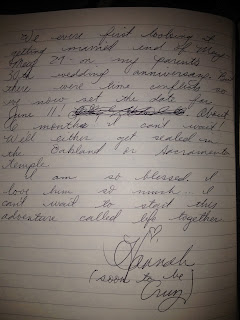 We were first looking at
getting married end of May
May 29 on my parents
30th wedding anniversary. But
there were time conflicts so
we now set the date for
June 11! About
6 months I can't wait!
We'll either get sealed in
the Oakland or Sacramento
temple.
I am so blessed. I
love him so much I
can't wait to start this
adventure called life together
Hannah
(soon to be
Cruz)